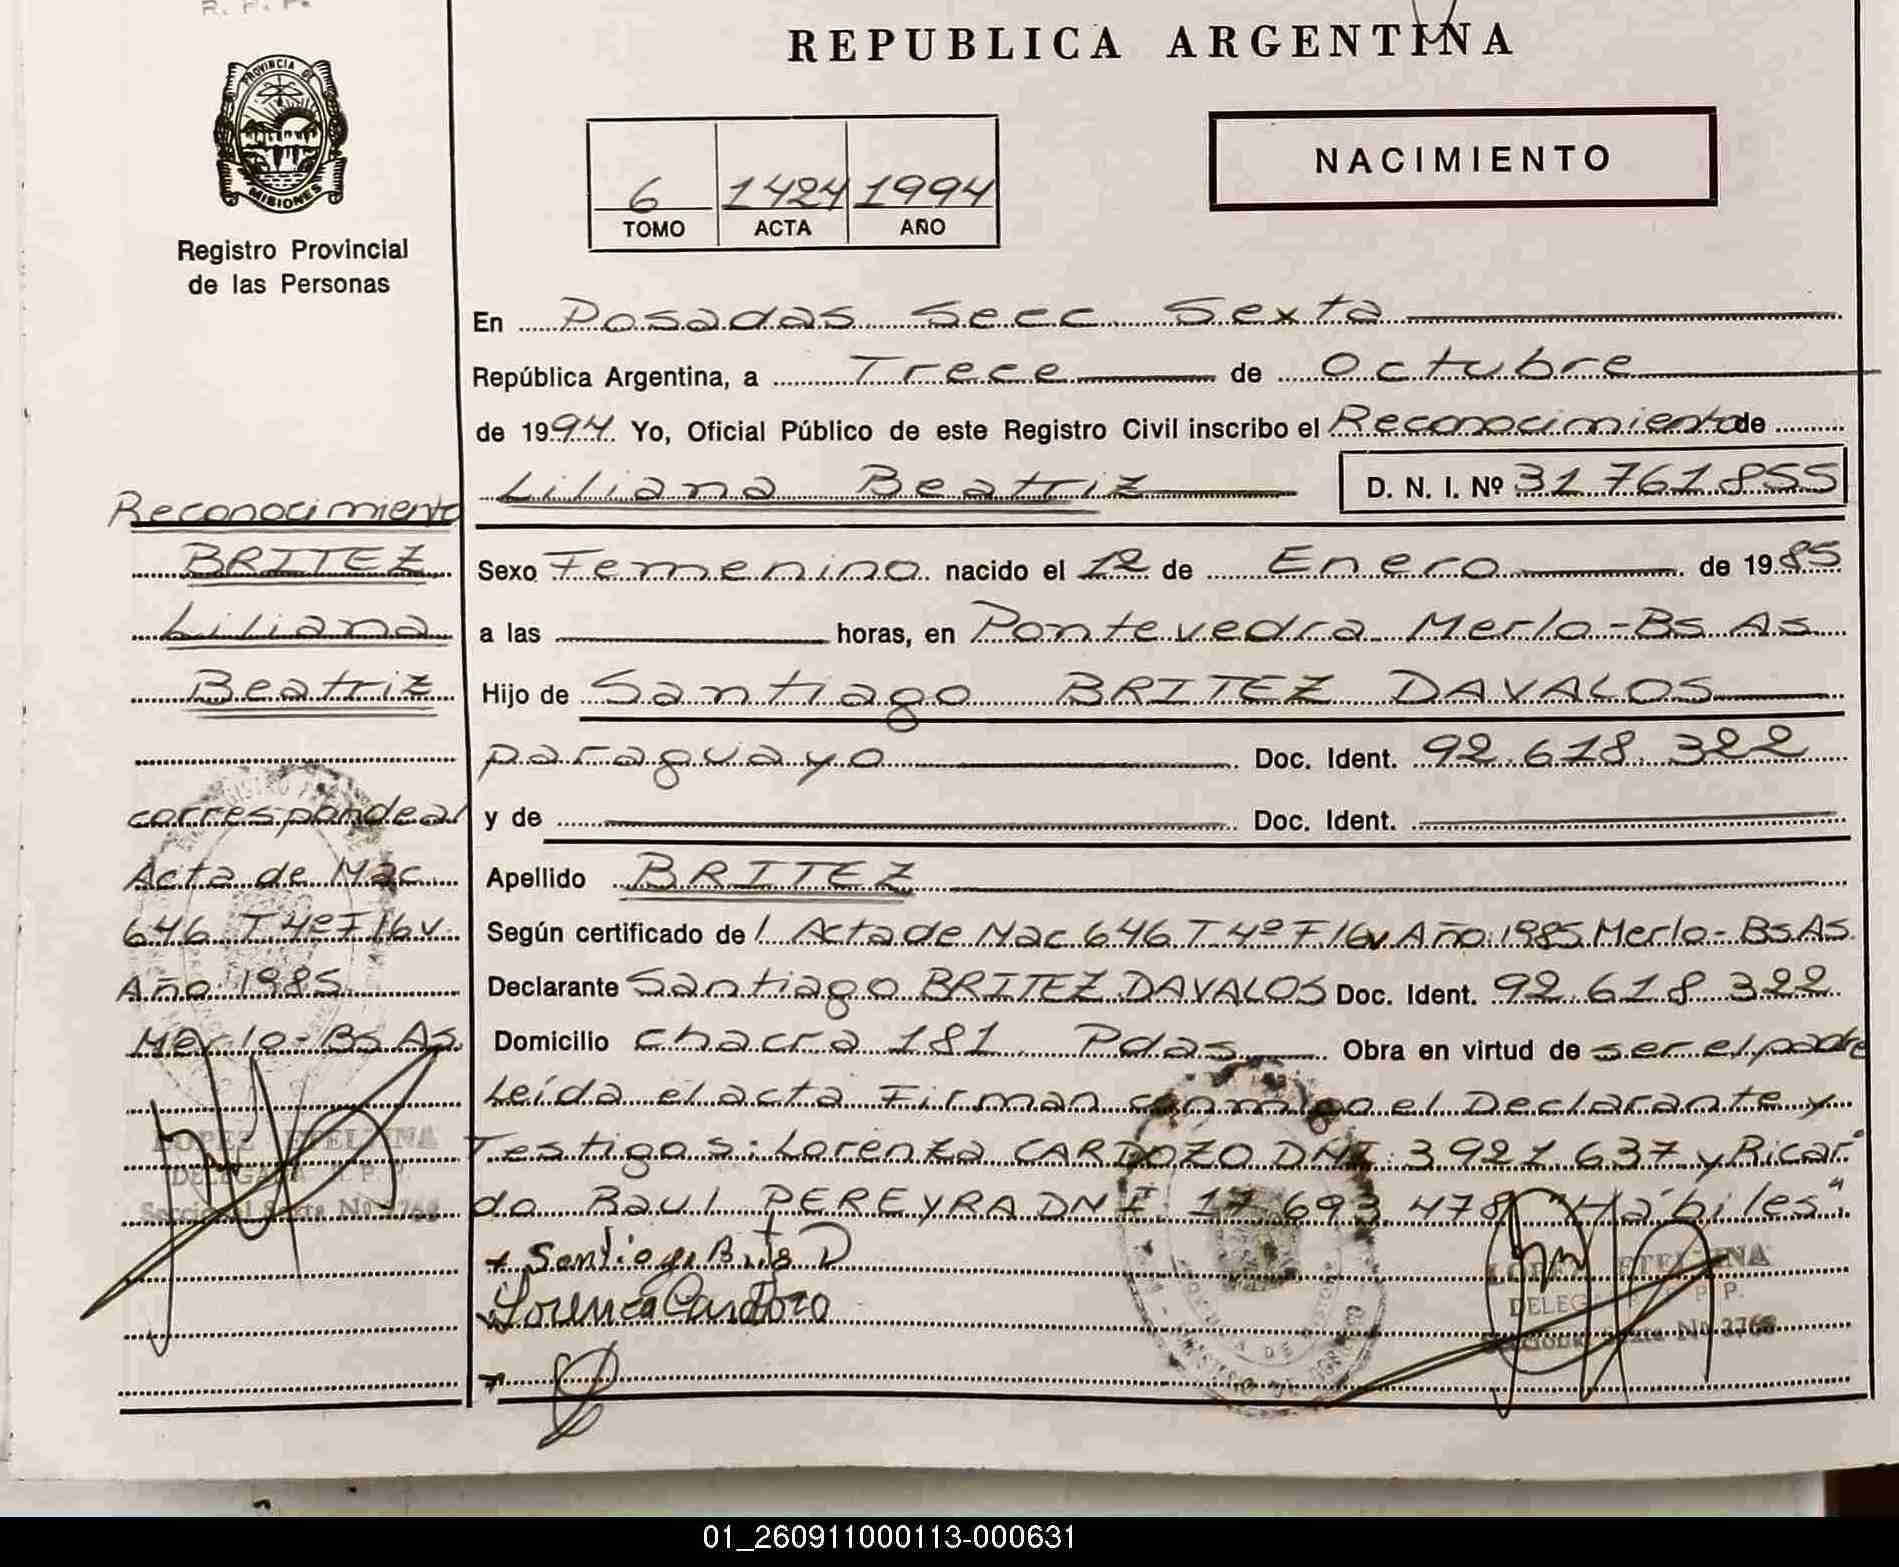 R. P. P.
REPUBLICA ARGENTINA
PROVINCIA DE
MISIONES
Registro Provincial
de las Personas
NACIMIENTO
6 1424 1994
TOMO ACTA AÑO
En Posadas Secc Sexta
República Argentina, a Trece de Octubre
de 1994 Yo, Oficial Público de este Registro Civil inscribo el Reconocimiento de
Liliana Beatriz D. N. I. Nº 31 761 855
Sexo Femenino nacido el 12 de Enero de 1985
a las horas, en Pontevedra Merlo-Bs As
Hijo de Santiago BRITEZ DAVALOS
paraguayo Doc. Ident. 92.618.322
y de Doc. Ident.
Apellido BRITEZ
Según certificado de l Acta de Nac 646 T 4º F 16v Año 1985 Merlo-Bs As
Declarante Santiago BRITEZ DAVALOS Doc. Ident. 92.618 322
Domicilio chacra 181 Pdas Obra en virtud de ser el padre
Leída el acta Firman conmigo el Declarante y
Testigos: Lorenza CARDOZO DNI 3921 637 y Ricar
do Raul PEREYRA DNI 17 693 478 "Hábiles".
Lorenza Cardozo
Reconocimiento
BRITEZ
Liliana
Beatriz
corresponde al
Acta de Nac
646 T 4º F 16v
Año 1985
Merlo-Bs As
LOPEZ ETELVINA
DELEGADA R. P. P.
Seccional Sexta Nº 2768
LOPEZ ETELVINA
DELEGADA R. P. P.
Seccional Sexta Nº 2768
01_260911000113-000631